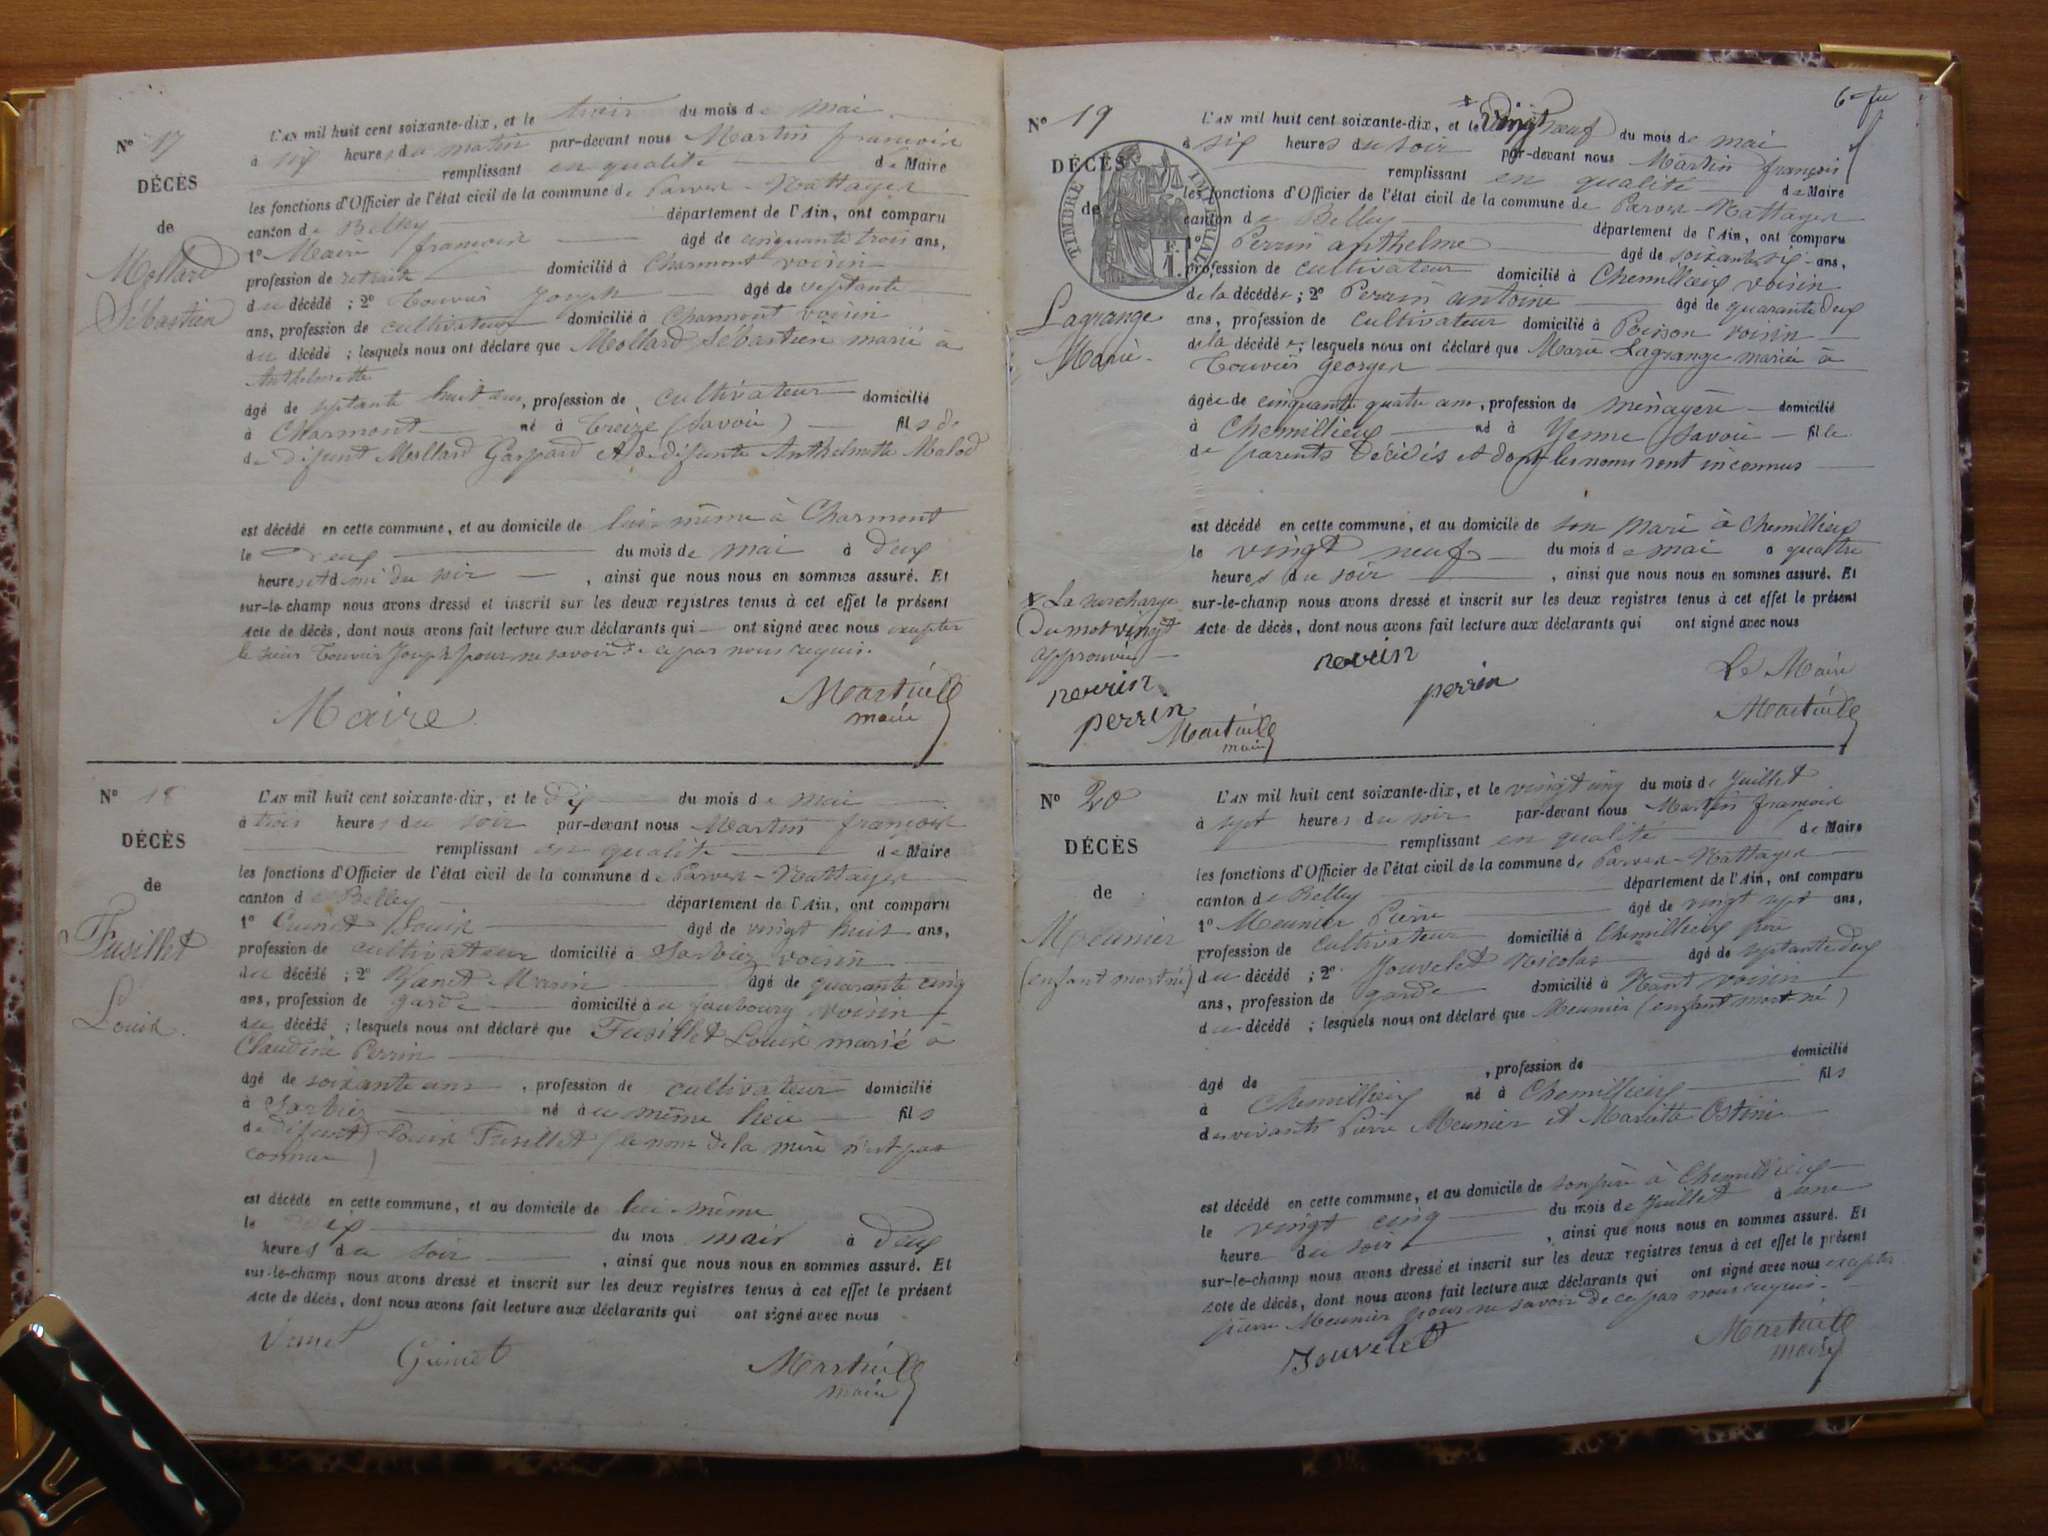 N° 17
DÉCÈS
de
Mollard
Sébastien
L'AN mil huit cent soixante-dix, et le trois du mois de mai
à six heures du matin par-devant nous Martin françois
remplissant en qualité de Maire
les fonctions d'Officier de l'état civil de la commune de Parves-Nattages
canton de Belley département de l'Ain, ont comparu
1° Maire françois âgé de cinquante trois ans,
profession de retraité domicilié à Charmont voisin
du décédé ; 2° Touvier Joseph âgé de septante
ans, profession de cultivateur domicilié à Charmont voisin
du décédé ; lesquels nous ont déclaré que Mollard Sébastien marié à
Anthelmette
âgé de septante huit ans, profession de cultivateur domicilié
à Charmont né à Traize (Savoie) fils de
de défunt Mollard Gaspard et de défunte Anthelmette Malod
est décédé en cette commune, et au domicile de lui-même à Charmont
le deux du mois de mai à deux
heures et demi du soir , ainsi que nous nous en sommes assuré. Et
sur-le-champ nous avons dressé et inscrit sur les deux registres tenus à cet effet le présent
Acte de décès, dont nous avons fait lecture aux déclarants qui ont signé avec nous excepter
le sieur Touvier Joseph pour ne savoir de ce par nous requis.
Maire
maire
N° 18
DÉCÈS
de
Fusillet
Louis.
L'AN mil huit cent soixante-dix, et le dix du mois de mai
à trois heures du soir par-devant nous Martin françois
remplissant en qualité de Maire
les fonctions d'Officier de l'état civil de la commune de Parves-Nattages
canton de Belley département de l'Ain, ont comparu
1° Guinet Louis âgé de vingt huit ans,
profession de cultivateur domicilié à Sorbiez voisin
du décédé ; 2° Vanet Marin âgé de quarante cinq
ans, profession de garde domicilié à au faubourg voisin
du décédé ; lesquels nous ont déclaré que Fusillet Louis marié à
Claudine Perrin
âgé de soixante ans , profession de cultivateur domicilié
à Sorbiez né à au même lieu fils
de défunt Louis Fusillet (le nom de la mère n'est pas
connue)
est décédé en cette commune, et au domicile de lui-même
le dix du mois mai à deux
heures du soir , ainsi que nous nous en sommes assuré. Et
sur-le-champ nous avons dressé et inscrit sur les deux registres tenus à cet effet le présent
Acte de décès, dont nous avons fait lecture aux déclarants qui ont signé avec nous
Vanet
Guinet
maire
6e fu
N° 19
DÉCÈS
de
TIMBRE IMPÉRIAL
F.
1.
Lagrange
Marie.
L'AN mil huit cent soixante-dix, et le vingt neuf du mois de mai
à six heures du soir par-devant nous Martin françois
remplissant en qualité de Maire
les fonctions d'Officier de l'état civil de la commune de Parves-Nattages
canton de Belley département de l'Ain, ont comparu
1° Perrin anthelme âgé de soixante six ans,
profession de cultivateur domicilié à Chemillieux voisin
de la décédée ; 2° Perrin antoine âgé de quarante deux
ans, profession de cultivateur domicilié à Poisson voisin
de la décédée ; lesquels nous ont déclaré que Marie Lagrange mariée à
Touvier Georges
âgée de cinquante quatre ans, profession de ménagère domicilié
à Chemillieux né à Yenne Savoie fille
de parents décédés et dont les noms sont inconnus
est décédé en cette commune, et au domicile de son mari à Chemillieux
le vingt neuf du mois de mai à quatre
heures du soir , ainsi que nous nous en sommes assuré. Et
sur-le-champ nous avons dressé et inscrit sur les deux registres tenus à cet effet le présent
Acte de décès, dont nous avons fait lecture aux déclarants qui ont signé avec nous
La surcharge
du mot vingt
approuvée
perrin
maire
perrin
Le Maire
N° 20
DÉCÈS
de
Meunier
(enfant mort né)
L'AN mil huit cent soixante-dix, et le vingt cinq du mois de Juillet
à sept heures du soir par-devant nous Martin françois
remplissant en qualité de Maire
les fonctions d'Officier de l'état civil de la commune de Parves-Nattages
canton de Belley département de l'Ain, ont comparu
1° Meunier Pierre âgé de vingt sept ans,
profession de cultivateur domicilié à Chemillieux père
du décédé ; 2° Jouvelet Nicolas âgé de septante deux
ans, profession de garde domicilié à Nant voisin
du décédé ; lesquels nous ont déclaré que Meunier (enfant mort né)
âgé de , profession de domicilié
à Chemillieux né à Chemillieux fils
des vivants Pierre Meunier et Mariette Ostini
est décédé en cette commune, et au domicile de son père à Chemillieux
le vingt cinq du mois de Juillet à une
heure du soir , ainsi que nous nous en sommes assuré. Et
sur-le-champ nous avons dressé et inscrit sur les deux registres tenus à cet effet le présent
acte de décès, dont nous avons fait lecture aux déclarants qui ont signé avec nous excepter
pierre Meunier pour ne savoir de ce par nous requis.
Jouvelet
maire